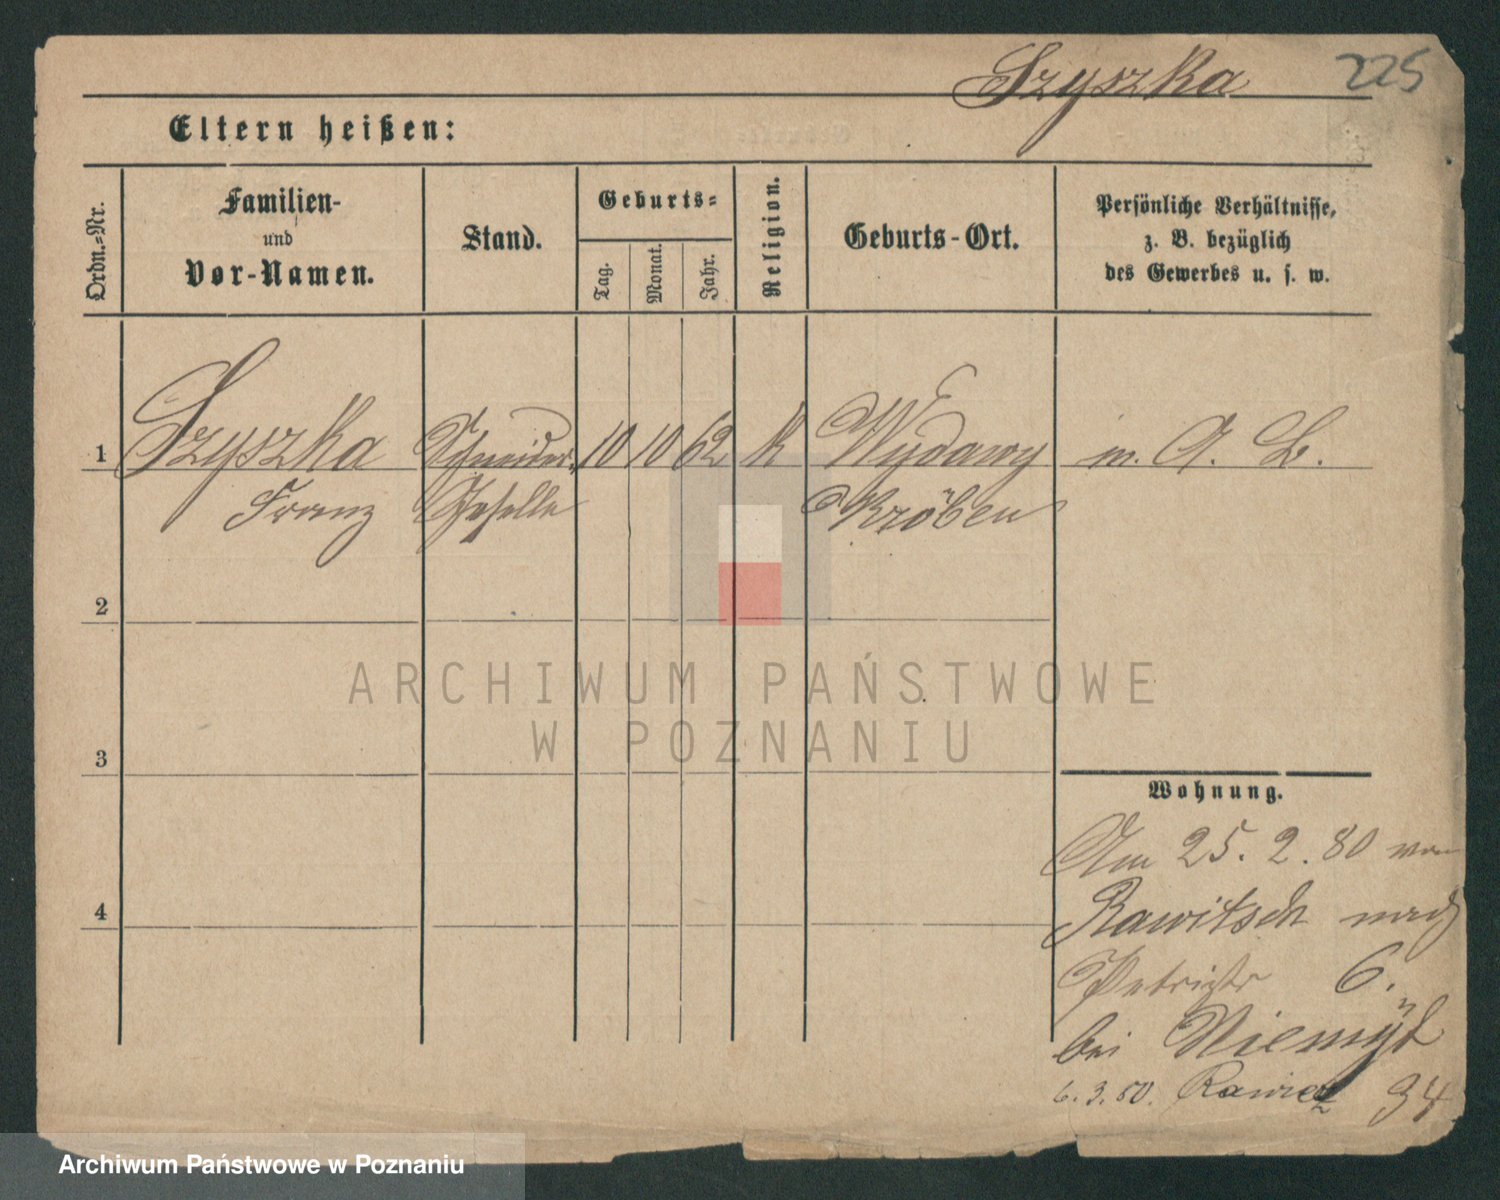 Szyszka 225
Eltern heißen:
Ordn.-Nr.
Familien-
und
Vor-Namen.
Stand.
Geburts-
Tag.
Monat.
Jahr.
Religion.
Geburts-Ort.
Persönliche Verhältnisse,
z. B. bezüglich
des Gewerbes u. s. w.
1 Szyszka Schneider- 10 10 62 K Wydawy m. A. B.
Franz Geselle Kröben
2
3
4
Wohnung.
Am 25. 2. 80 von
Rawitsch nach
6.
bei
6. 3. 80. Rawicz 34
ARCHIWUM PAŃSTWOWE
W POZNANIU
Archiwum Państwowe w Poznaniu